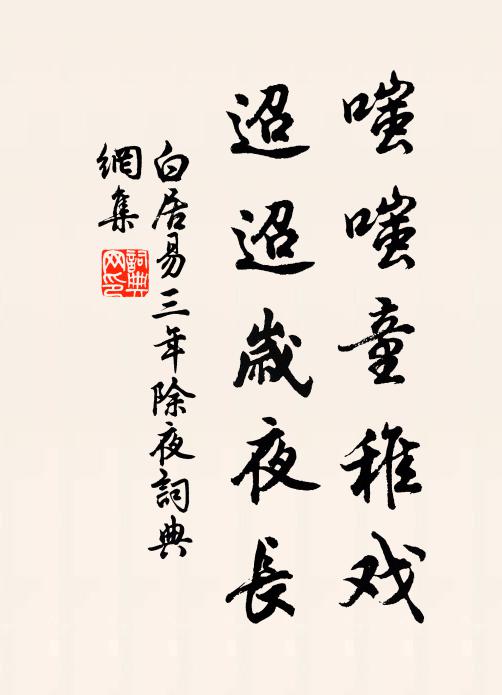 嗤嗤童稚戏
迢迢歲夜長
白居易三年除夜詞典
網集
詞典
网印